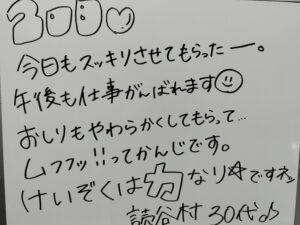 今日もスッキリさせてもらったー。
午後も仕事がんばれます☺
おしりもやわらかくしてもらって…
ムフフッ!!ってかんじです。
けいぞくは力なり☆ですネッ
読谷村 30代♪